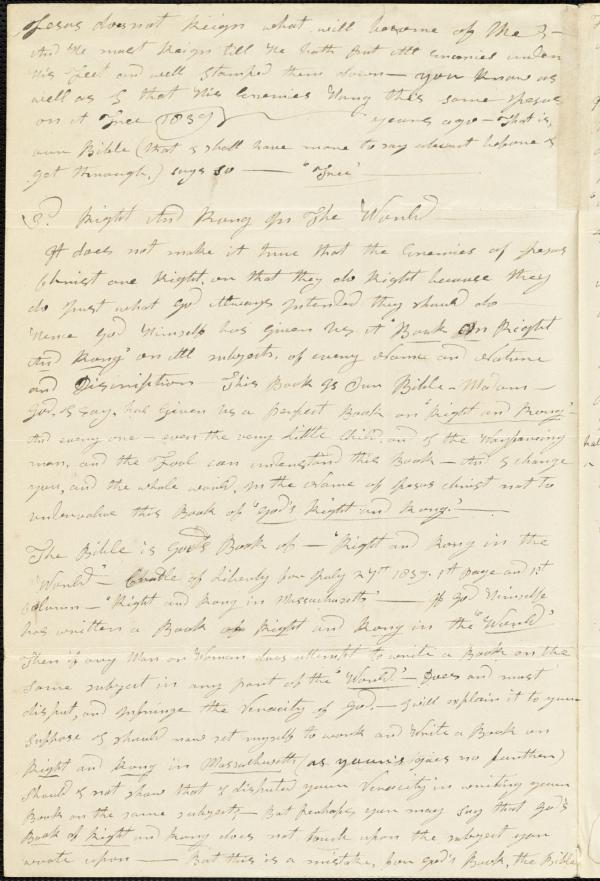 Jesus does not Reign what will become of Me &–
And He must Reign till He hath Put All Enemies under
His Feet and well stamped them down — you know as
well as I that His Enemies Hung this same Jesus
on A Tree (1839) years ago — That is,
our Bible (that I shall have more to say about before I
get through,) says so —— "Tree" ——
3? Right And Rong In The World ——
It does not make it true that the Enemies of Jesus
Christ are Right, or that they do Right because they
do Just what God Always Intended they should do
Hence God Himself has given us A "Book On Right
And Rong" on All subjects, of every Name and Nature
and Discription — This Book Is Our Bible — Madam —
God, I say, has given us a perfect Book on "Right and Rong"–
And every one — even the very Little Child, and the Wayfaring
man, and the Fool can understand this Book — And I charge
you, and the whole world, In the Name of Jesus Christ not to
undervalue this Book of "God's Right and Rong." —
The Bible is God's Book of — "Right and Rong in the
"World" — Cradle of Liberty for July 27th 1839. 1st Page and 1st
column — "Right and Rong in Massachusetts" —— If God Himself
has written a Book of Right and Rong in the "World"
Then if any Man or Woman does attempt to write a Book on the
same subject in any part of the "World" — Does and must
disput, and Infringe the Veracity of God. — I will explain it to you
Suppose I should now set myself to work and Write a Book on
Right and Rong in Massachusetts (as yours goes no further)
Should I not show that I disputed your Veracity in writing your
Book on the same subject, — But perhaps you may say that God's
Book of Right and Rong does not touch upon the subject you
wrote upon —— But this is a mistake, for God's Book, the Bible